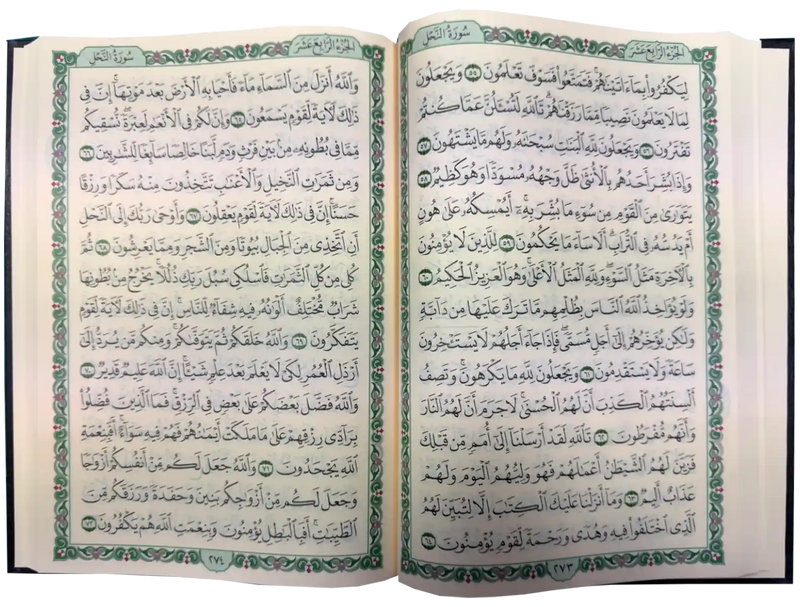 الجُزءُ الرَّابِعَ عَشَرَ سُورَةُ النَّحْلِ
لِيَكْفُرُوا۟ بِمَآ ءَاتَيْنَـٰهُمْ ۚ فَتَمَتَّعُوا۟ فَسَوْفَ تَعْلَمُونَ ٥٥ وَيَجْعَلُونَ
لِمَا لَا يَعْلَمُونَ نَصِيبًا مِّمَّا رَزَقْنَـٰهُمْ ۗ تَٱللَّهِ لَتُسْـَٔلُنَّ عَمَّا كُنتُمْ
تَفْتَرُونَ ٥٦ وَيَجْعَلُونَ لِلَّهِ ٱلْبَنَـٰتِ سُبْحَـٰنَهُۥ ۙ وَلَهُم مَّا يَشْتَهُونَ ٥٧
وَإِذَا بُشِّرَ أَحَدُهُم بِٱلْأُنثَىٰ ظَلَّ وَجْهُهُۥ مُسْوَدًّا وَهُوَ كَظِيمٌ ٥٨
يَتَوَٰرَىٰ مِنَ ٱلْقَوْمِ مِن سُوٓءِ مَا بُشِّرَ بِهِۦٓ ۚ أَيُمْسِكُهُۥ عَلَىٰ هُونٍ
أَمْ يَدُسُّهُۥ فِى ٱلتُّرَابِ ۗ أَلَا سَآءَ مَا يَحْكُمُونَ ٥٩ لِلَّذِينَ لَا يُؤْمِنُونَ
بِٱلْـَٔاخِرَةِ مَثَلُ ٱلسَّوْءِ ۖ وَلِلَّهِ ٱلْمَثَلُ ٱلْأَعْلَىٰ ۚ وَهُوَ ٱلْعَزِيزُ ٱلْحَكِيمُ ٦٠
وَلَوْ يُؤَاخِذُ ٱللَّهُ ٱلنَّاسَ بِظُلْمِهِم مَّا تَرَكَ عَلَيْهَا مِن دَآبَّةٍ
وَلَـٰكِن يُؤَخِّرُهُمْ إِلَىٰٓ أَجَلٍ مُّسَمًّى ۖ فَإِذَا جَآءَ أَجَلُهُمْ لَا يَسْتَـْٔخِرُونَ
سَاعَةً ۖ وَلَا يَسْتَقْدِمُونَ ٦١ وَيَجْعَلُونَ لِلَّهِ مَا يَكْرَهُونَ ۚ وَتَصِفُ
أَلْسِنَتُهُمُ ٱلْكَذِبَ أَنَّ لَهُمُ ٱلْحُسْنَىٰ ۖ لَا جَرَمَ أَنَّ لَهُمُ ٱلنَّارَ
وَأَنَّهُم مُّفْرَطُونَ ٦٢ تَٱللَّهِ لَقَدْ أَرْسَلْنَآ إِلَىٰٓ أُمَمٍ مِّن قَبْلِكَ
فَزَيَّنَ لَهُمُ ٱلشَّيْطَـٰنُ أَعْمَـٰلَهُمْ فَهُوَ وَلِيُّهُمُ ٱلْيَوْمَ وَلَهُمْ
عَذَابٌ أَلِيمٌ ٦٣ وَمَآ أَنزَلْنَا عَلَيْكَ ٱلْكِتَـٰبَ إِلَّا لِتُبَيِّنَ لَهُمُ
ٱلَّذِى ٱخْتَلَفُوا۟ فِيهِ ۙ وَهُدًى وَرَحْمَةً لِّقَوْمٍ يُؤْمِنُونَ ٦٤
٢٧٣
الجُزءُ الرَّابِعَ عَشَرَ سُورَةُ النَّحْلِ
وَٱللَّهُ أَنزَلَ مِنَ ٱلسَّمَآءِ مَآءً فَأَحْيَا بِهِ ٱلْأَرْضَ بَعْدَ مَوْتِهَآ ۚ إِنَّ فِى
ذَٰلِكَ لَـَٔايَةً لِّقَوْمٍ يَسْمَعُونَ ٦٥ وَإِنَّ لَكُمْ فِى ٱلْأَنْعَـٰمِ لَعِبْرَةً ۖ نُّسْقِيكُم
مِّمَّا فِى بُطُونِهِۦ مِنۢ بَيْنِ فَرْثٍ وَدَمٍ لَّبَنًا خَالِصًا سَآئِغًا لِّلشَّـٰرِبِينَ ٦٦
وَمِن ثَمَرَٰتِ ٱلنَّخِيلِ وَٱلْأَعْنَـٰبِ تَتَّخِذُونَ مِنْهُ سَكَرًا وَرِزْقًا
حَسَنًا ۗ إِنَّ فِى ذَٰلِكَ لَـَٔايَةً لِّقَوْمٍ يَعْقِلُونَ ٦٧ وَأَوْحَىٰ رَبُّكَ إِلَى ٱلنَّحْلِ
أَنِ ٱتَّخِذِى مِنَ ٱلْجِبَالِ بُيُوتًا وَمِنَ ٱلشَّجَرِ وَمِمَّا يَعْرِشُونَ ٦٨ ثُمَّ
كُلِى مِن كُلِّ ٱلثَّمَرَٰتِ فَٱسْلُكِى سُبُلَ رَبِّكِ ذُلُلًا ۚ يَخْرُجُ مِنۢ بُطُونِهَا
شَرَابٌ مُّخْتَلِفٌ أَلْوَٰنُهُۥ فِيهِ شِفَآءٌ لِّلنَّاسِ ۗ إِنَّ فِى ذَٰلِكَ لَـَٔايَةً لِّقَوْمٍ
يَتَفَكَّرُونَ ٦٩ وَٱللَّهُ خَلَقَكُمْ ثُمَّ يَتَوَفَّىٰكُمْ ۚ وَمِنكُم مَّن يُرَدُّ إِلَىٰٓ
أَرْذَلِ ٱلْعُمُرِ لِكَىْ لَا يَعْلَمَ بَعْدَ عِلْمٍ شَيْـًٔا ۚ إِنَّ ٱللَّهَ عَلِيمٌ قَدِيرٌ ٧٠
وَٱللَّهُ فَضَّلَ بَعْضَكُمْ عَلَىٰ بَعْضٍ فِى ٱلرِّزْقِ ۚ فَمَا ٱلَّذِينَ فُضِّلُوا۟
بِرَآدِّى رِزْقِهِمْ عَلَىٰ مَا مَلَكَتْ أَيْمَـٰنُهُمْ فَهُمْ فِيهِ سَوَآءٌ ۚ أَفَبِنِعْمَةِ
ٱللَّهِ يَجْحَدُونَ ٧١ وَٱللَّهُ جَعَلَ لَكُم مِّنْ أَنفُسِكُمْ أَزْوَٰجًا
وَجَعَلَ لَكُم مِّنْ أَزْوَٰجِكُم بَنِينَ وَحَفَدَةً وَرَزَقَكُم مِّنَ
ٱلطَّيِّبَـٰتِ ۚ أَفَبِٱلْبَـٰطِلِ يُؤْمِنُونَ وَبِنِعْمَتِ ٱللَّهِ هُمْ يَكْفُرُونَ ٧٢
٢٧٤